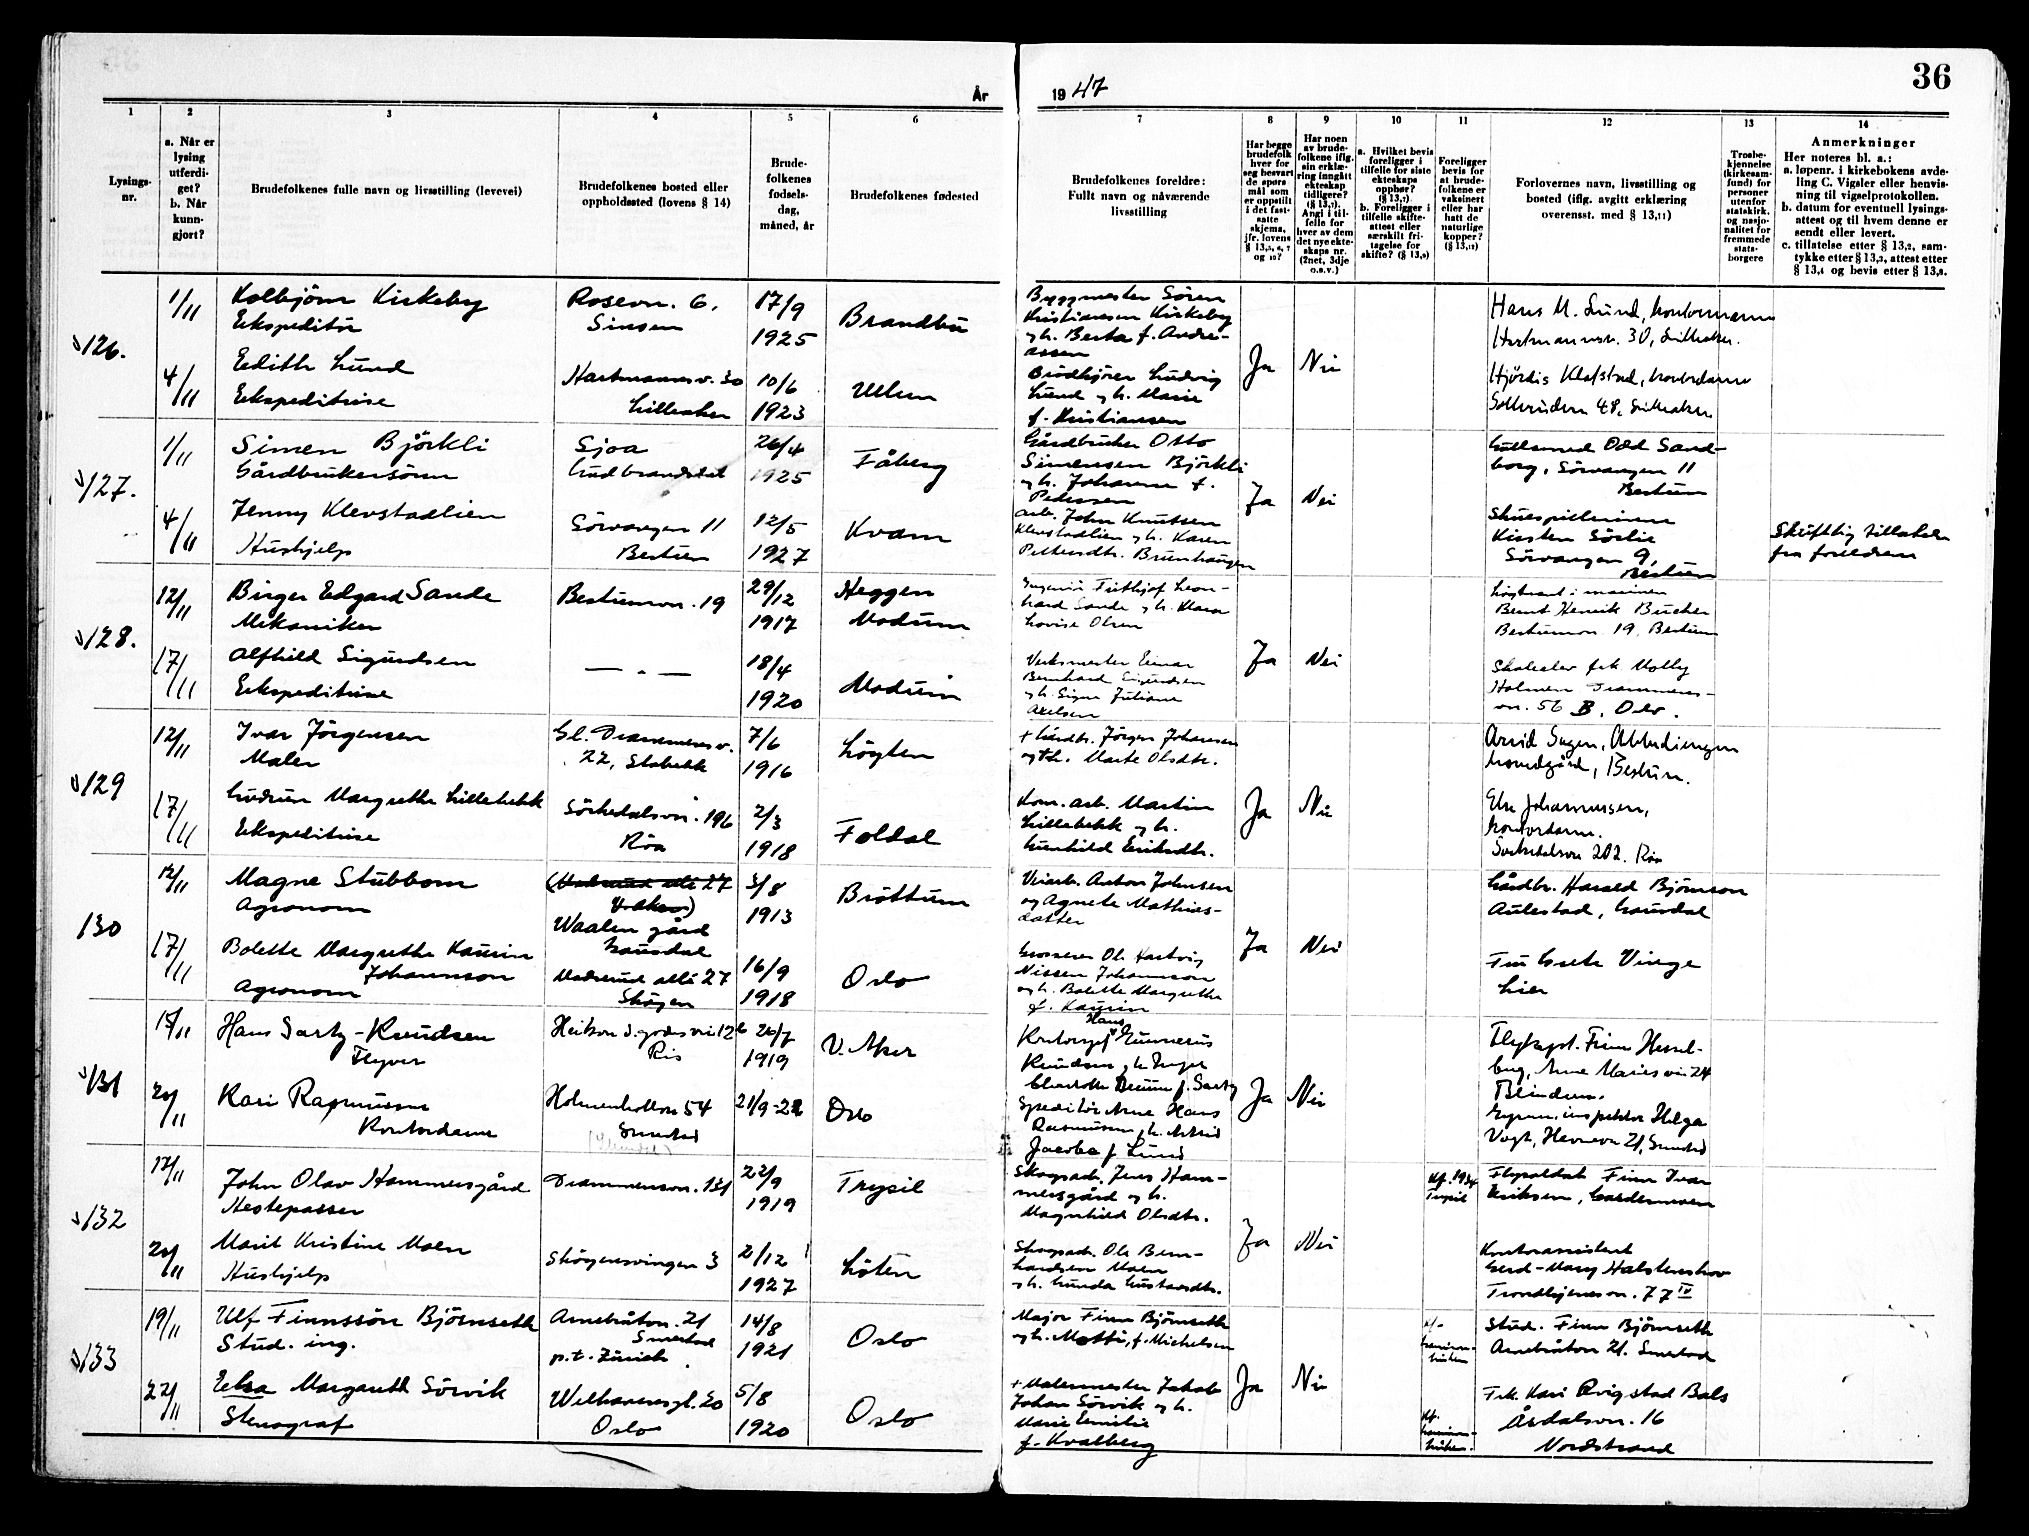 År
19 47
36
1
2
3
4
5
6
7
8
9
10
11
12
13
14
Lysings-
nr.
a. Når er
lysing
utferdi-
get?
b. Når
kunn-
gjort?
Brudefolkenes fulle navn og livsstilling (levevei)
Brudefolkenes bosted eller
oppholdssted (lovens § 14)
Brude-
folkenes
fødsels-
dag,
måned, år
Brudefolkenes fødested
Brudefolkenes foreldre:
Fullt navn og nåværende
livsstilling
Har begge
brudefolk
hver for
seg besvart
de spørs-
mål som
er oppstilt
i det fast-
satte
skjema,
jfr. lovens
og
Har noen
av brude-
folkene iflg.
sin erklæ-
ring inngått
ekteskap
tidligere?
Angi i til-
felle for
hver av dem
det nye ekte-
skaps nr.
(2net, 3dje
o.s.v.)
a. Hvilket bevis
foreligger i
tilfelle for siste
ekteskaps
opphør?
b. Foreligger i
tilfelle skifte-
attest eller
særskilt fri-
tagelse for
skifte?
Foreligger
bevis for
at brude-
folkene er
vaksinert
eller har
hatt de
naturlige
kopper?
Forlovernes navn, livsstilling og
bosted (iflg. avgitt erklæring
overensst. med § 13,11)
Trosbe-
kjennelse
(kirkesam-
fund) for
personer
utenfor
statskirk.
og nasjo-
nalitet for
fremmede
stats-
borgere
Anmerkninger
Her noteres bl. a.:
a. løpenr. i kirkebokens avde-
ling C. Vigsler eller henvis-
ning til vigselprotokollen.
b. datum for eventuell lysings-
attest og til hvem denne er
sendt eller levert.
c. tillatelse etter § 13,2, sam-
tykke etter § 13,3, attest etter
§ 13,4 og bevis etter § 13,8.
126.
1/11
Kolbjörn Kirkeby
Ekspeditör
Rosenv. 6,
Sinsen
17/9
1925
Brandbu
Byggmester Sören
Kristiansen Kirkeby
og h. Berta f. Andre-
assen
Ja
Nei
Hans M. Lund, kontormann
Hartmannsv. 30, Lilleaker.
4/11
Edith Lund
Ekspeditrise
Hartmannsv. 30
Lilleaker
10/6
1923
Ullern
Brödkjörer Ludvig
Lund og h. Marie
f. Kristiansen
Hjördis Klafstad, kontordame
Sollerudvn 48, Lilleaker
127.
1/11
Simen Björkli
Gårdbrukersönn
Sjoa
Gudbrandsdal
26/4
1925
Fåberg
Gårdbruker Otto
Simensen Björkli
og h. Johanne f.
Pedersen
Ja
Nei
Gullsmed Odd Sand-
borg, Sörvangen 11
Bestum
4/11
Jenny Klevstadlien
Hushjelp
Sörvangen 11
Bestum
12/5
1927
Kvam
Arb. John Knutsen
Klevstadlien og h. Karen
Pettersdtr. Brunhaugen
Skuespillerinne
Kirsten Sörlie
Sörvangen 9,
Bestum
Skriftlig tillatelse
fra foreldrene
128.
12/11
Birger Edgard Sande
Mekaniker
Bestumvn. 19
29/12
1917
Heggen
Modum
Ingeniör Frithjof Leon-
hard Sande og h. Klara
Lovise Olsen
Ja
Nei
Bernt Henrik Bucher
Bestumvn 19, Bestum
17/11
Alfhild Sigurdsen
Ekspeditrise
— „ —
18/4
1920
Modum
Verksmester Einar
Bernhard Sigurdsen
og h. Signe Juliane
Axelsen
Skoleelev frk Molly
Holmen Drammens-
vn. 56 B, Oslo.
129
12/11
Ivar Jörgensen
Maler
Gl. Drammensv.
22, Stabekk
7/6
1916
Lögten
+ Gårdbr. Jörgen Johansen
og +h. Marte Olsdtr.
Ja
Nei
Arvid Sagen, Abbediengen
hovedgård, Bestum.
17/11
Gudrun Margrethe Lillebekk
Ekspeditrise
Sörkedalsvn. 196
Röa
2/3
1918
Foldal
Kom. arb. Martin
Lillebekk og h.
Gunhild Eriksdtr.
Else Johannessen,
kontordame.
Sörkedalsvn 202. Röa
130
12/11
Magne Stubbom
Agronom
V. Aker)
Waalen gård
Gausdal
3/8
1913
Bröttum
Veiarb. Anton Johnsen
og Agnete Mathias-
datter
Ja
Nei
Gårdbr. Harald Björnson
Aulestad, Gausdal
17/11
Bolette Margrethe Kaurin
Johannson
Agronom
Madserud allé 27
Sköyen
16/9
1918
Oslo
Grosserer Ole Hartvig
Nissen Johannson
og h. Bolette Margrethe
f. Kaurin
Fru Grete Vinge
Lier
131
15/11
Hans Sartz-Knudsen
Flyver
Ris
26/7
1919
V. Aker
Hans
Kontorsjef Gunnerus
Knudsen og h. Inger
Charlotte f. Sartz
Ja
Nei
Flykapt. Finn Hessel-
berg, Arne Maries vei 24
Blindern.
20/11
Kari Rasmussen
Kontordame
Holmenkollvn 54
Smestad
21/9-22
Oslo
Speditör Arne Hans
Rasmussen og h. Astrid
Jacobe f. Lund
Gymn. inspektör Helge
Vogt, Heyernvn 21, Smestad
132
17/11
John Olav Hammersgård
Hestepasser
Drammensvn. 131
22/9
1919
Trysil
Skogsarb. Jens Ham-
mersgård og h.
Magnhild Olsdtr.
Ja
Nei
Kf. 1934
Trysil
Flysoldat Finn Ivar
Eriksen, Gardermoen
20/11
Marit Kristine Moen
Hushjelp
Sköyensvingen 3
21/12
1927
Löten
Skogsarb. Ole Bern-
hardsen Moen
og h. Gunda Gustavsdtr.
Kontorassistent
Gerd-Mary Halstenshov
Trondhjemsvn. 77 IV
133
19/11
Ulf Finnssön Björnseth
Stud. ing.
Arnebråtvn. 21
Smestad
p.t. Zürich
14/8
1921
Oslo
Major Finn Björnseth
og h. Motti, f. Michelsen
Ja
Nei
Stud. Finn Björnseth
Arnebråtvn 21. Smestad
22/11
Elsa Margareth Sörvik
Stenograf
Welhavensgt. 20
Oslo
5/8
1920
Oslo
+ Malermester Jakob
Johan Sörvik og h.
Marie Emilie
f. Kvalberg
Frk. Kari Qvigstad Bals
Årdalsvn. 16
Nordstrand